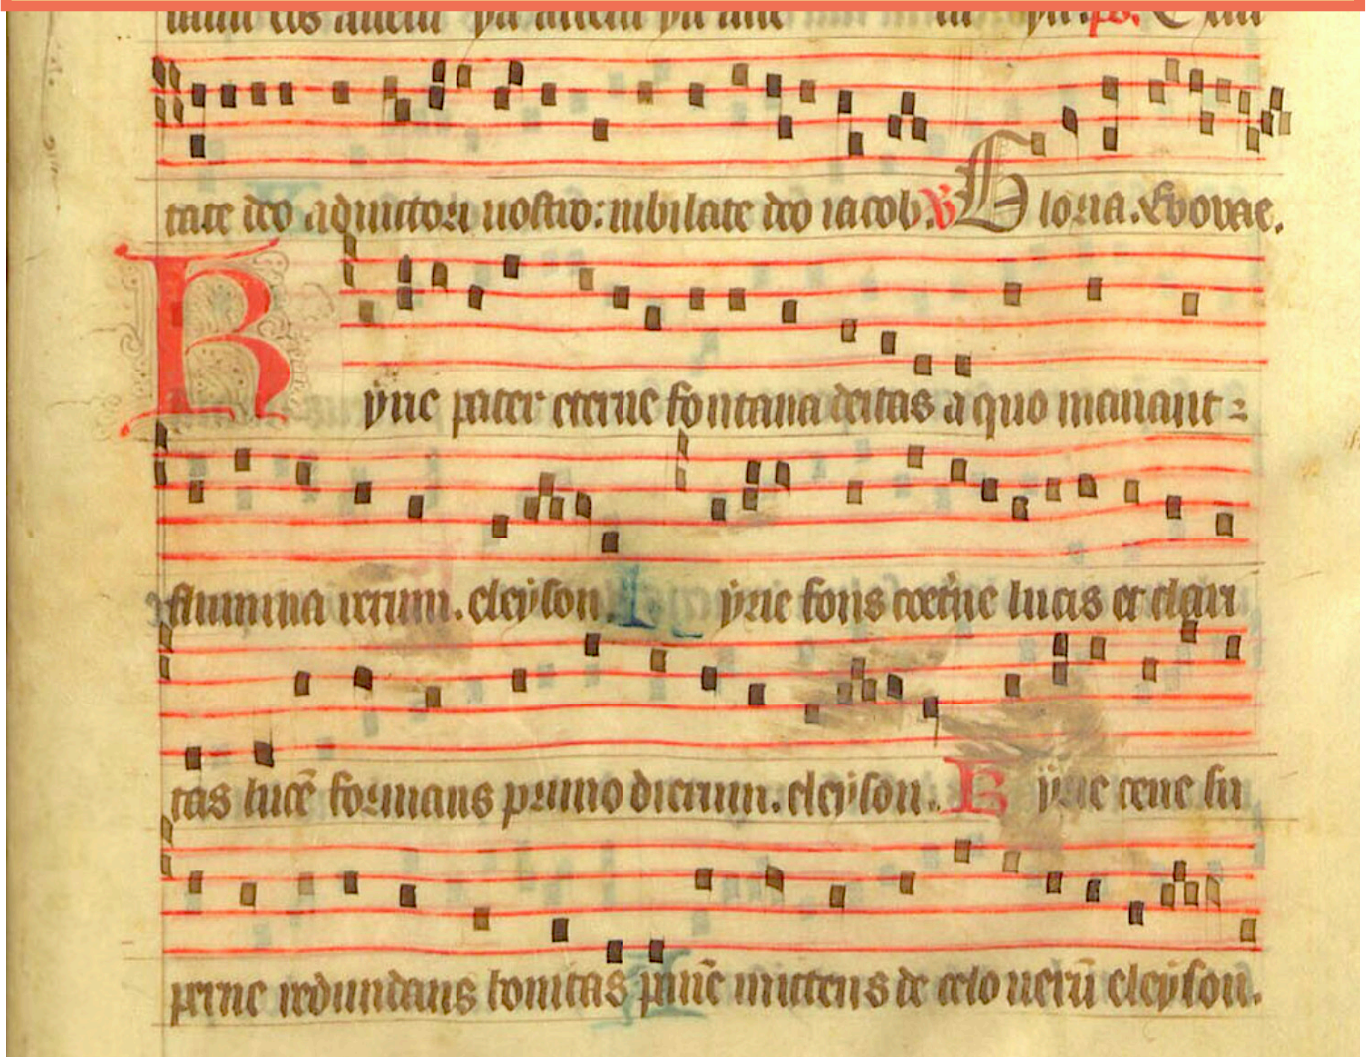 tate deo adiutori nostro: iubilate deo iacob. V Gloria. Evovae.
Kyrie pater eterne fontana deitas a quo manant
flumina rerum. eleyson. Kyrie fons coetne lucis et clari
tas lucē formans primo dierum. eleyson. Kyrie cene su
perne redundans bonitas pinē mittens de celo verū eleyson.